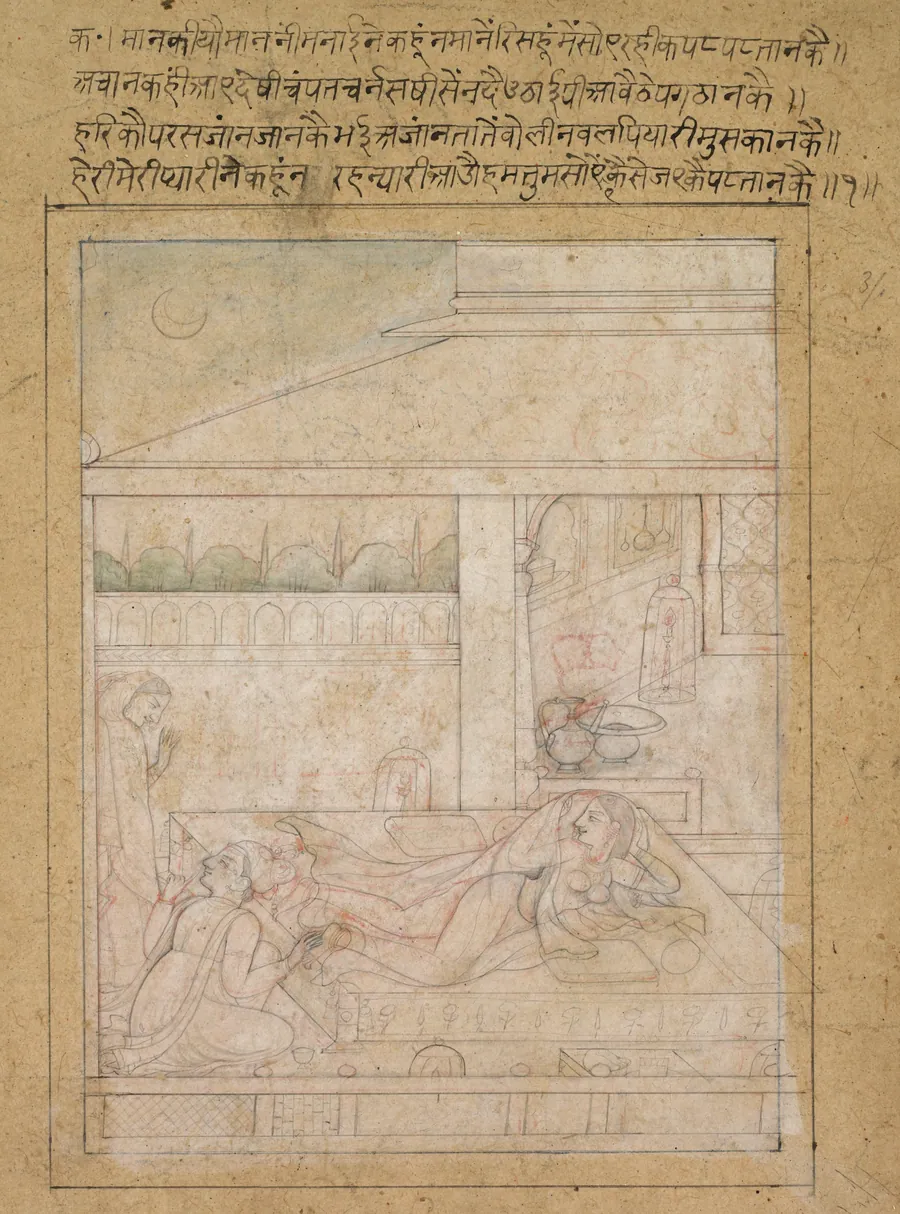 क॰। मानकीयौमाननीमनाईनेकहूंनमानेंरिसहूंमेंसोइरहीकपटपटतानकै॥
अचानकहींआइदेषीचंपतचर्नसषीसेंनदैउठाईपीआवैठेपगठानकै॥
हरिकौपरसजांनजानकैभईअजांनतातेंवोलीनवलपियारीमुसकानकै॥
हेरीमेरीप्यारीनेकहूंन रहन्यारीआउौहमतुमसोइंकैसेजइकैपटतानकै॥१॥
31.